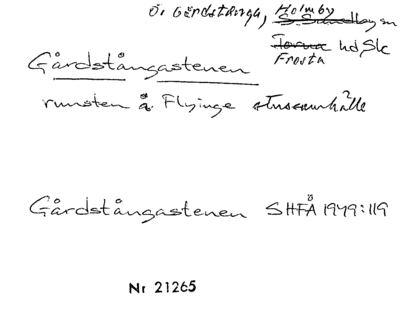 Ö. Gårdstånga, Holmby
S. Sandby sn
Torna hd, Sk
Frosta
Gårdstångastenen
runsten å Flyinge stuteriumhålle
Gårdstångastenen SHFÅ 1949:119
Nr 21265